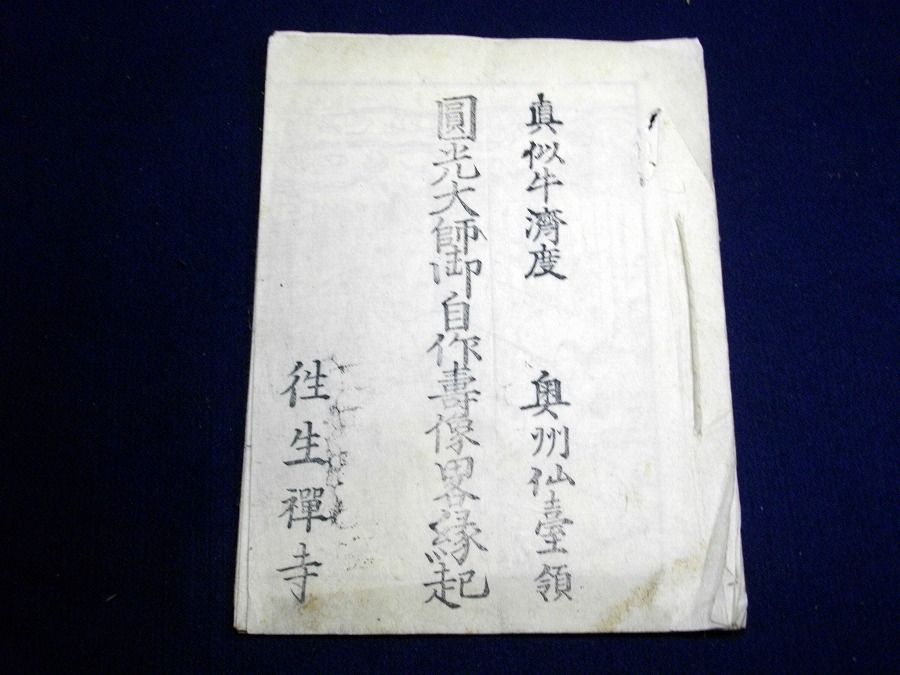 真似牛濟度　奥州仙臺領
圓光大師御自作壽像畧縁起
徃生禪寺